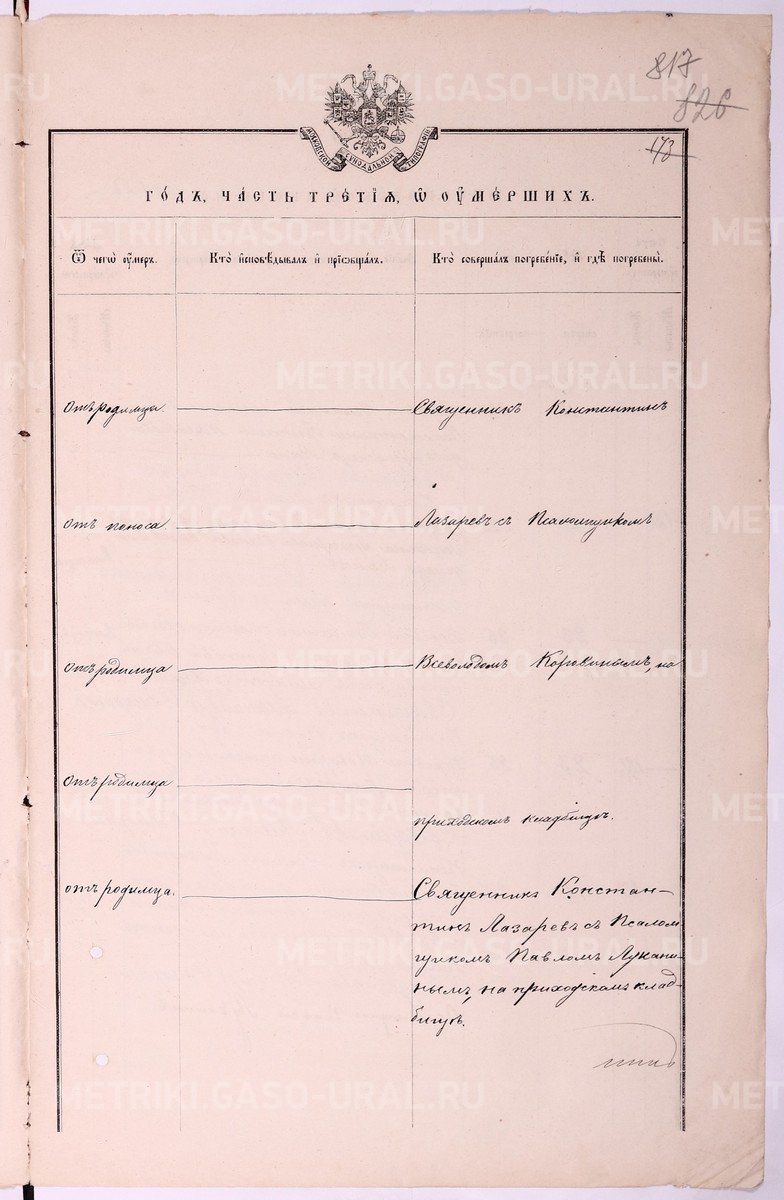 817
826
173
МОСКОВСКОЙ СѴНОДАЛЬНОЙ ТИПОГРАФІИ
ГО́ДЪ, ЧА́СТЬ ТРЕ́ТІѦ, Ѡ҆ ОУ҆МЕ́РШИХЪ.
Ѿ чегѡ̀ ᲂу҆́меръ.
Кто̀ и҆сповѣ́дывалъ и҆ прїѡбща́лъ.
Кто̀ соверша́лъ погребе́нїе, и҆ гдѣ̀ погребены̀.
Отъ родимца
Священникъ Константинъ
отъ поноса
Лазаревъ съ Псаломщикомъ
отъ родимца
Всеволодомъ Коровинымъ, на
отъ родимца
приходскомъ кладбищѣ.
отъ родимца.
Священникъ Констан-
тинъ Лазаревъ съ Псалом
щикомъ Павломъ Лукани-
нымъ, на приходскомъ клад-
бищѣ.
METRIKI.GASO-URAL.RU